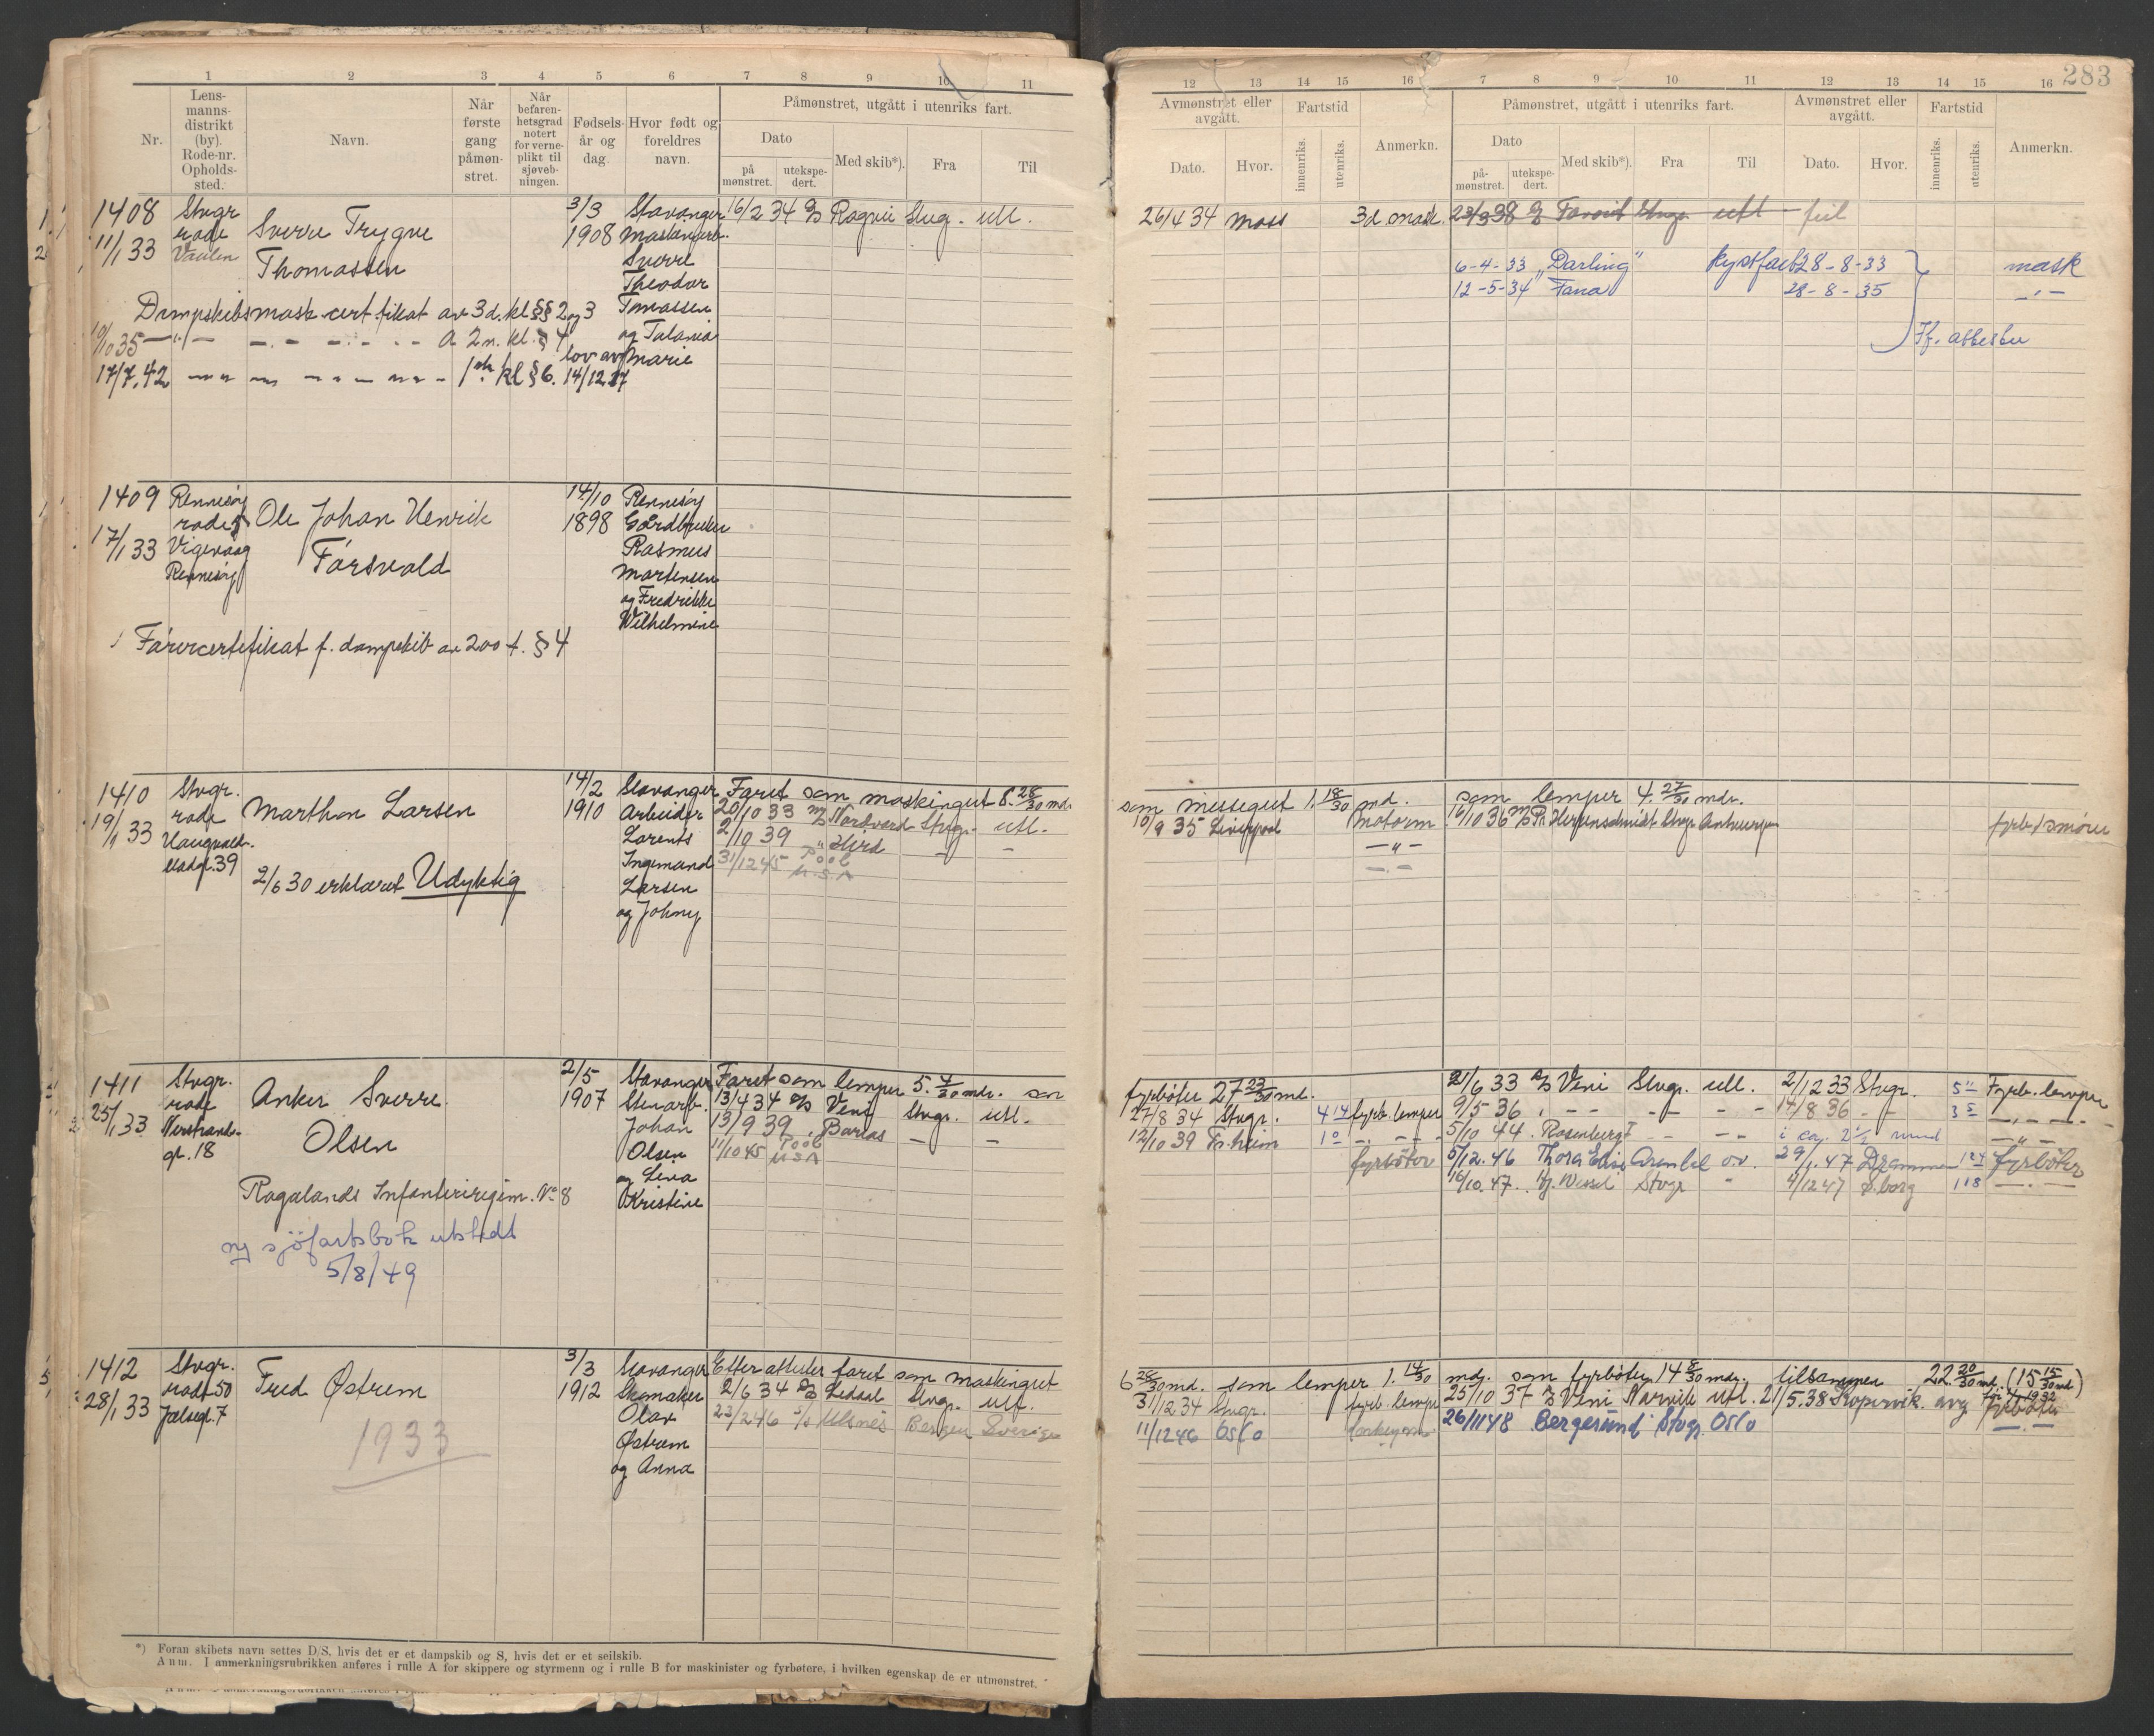 283
1 2 3 4 5 6 7 8 9 10 11
Nr.
Lensmannsdistrikt (by). Rode-nr. Opholdssted.
Navn.
Når første gang påmønstret.
Når befarenhetsgrad notert for verneplikt til sjøvebningen.
Fødselsår og dag.
Hvor født og foreldres navn.
Påmønstret, utgått i utenriks fart.
Dato
på mønstret.
utekspedert.
Med skib*).
Fra
Til
12 13 14 15 16 7 8 9 10 11 12 13 14 15 16
Avmønstret eller avgått.
Dato.
Hvor.
Fartstid
innenriks.
utenriks.
Anmerkn.
Påmønstret, utgått i utenriks fart.
Dato
på-mønstret.
utekspedert.
Med skib*).
Fra
Til
Avmønstret eller avgått.
Dato.
Hvor.
Fartstid
innenriks.
utenriks.
Anmerkn.
1408
11/1 33
Stvgr
rode
Vaulen
Sverre Trygve
Thomassen
3/3
1908
Stavanger
Sverre
Theodor
Tomassen
og Talania
Marie
Dampskibsmask certifikat av 3d. kl §§ 2 og 3
10/10 35 — " — A 2n. kl. § 4
17/7.42 1ste kl § 6. lov av 14/12 27
16/2 34 D/S Ragni Stvg. utl.
26/4 34 Moss 3d mask.
23/3 38 D/S Favorit Stvgr utl feil
6-4-33 "Darling" kystfart 28-8-33 mask
12-5-34 Fana 28-8-35 —"—
If. attester
1409
17/1 33
Rennesøy
rode 5
Vigevaag
Rennesøy
Ole Johan Henrik
Førsvold
14/10
1898
Rennesøy
Gårdbruker
Rasmus
Martensen
og Fredrikke
Wilhelmine
Førercertefikat f. dampskib av 200 t. § 4
1410
19/1 33
Stvgr.
rode
Haugvald-
stadgt. 39
Marthon Larsen
2/6 30 erklæret Udyktig
14/2
1910
Stavanger
Arbeider
Lorents
Ingemand
Larsen
og Johny
Faret som maskingut 8. 28/30 md.
20/10 33 M/S Nordvard Stvgr. utl.
2/10 39 " Hird — —
31/12 45 Pool
U.S.A
som messegut 1. 18/30 md.
10/9 35 Liverpool Motorm
— " —
— . —
som lemper 4. 27/30 mdr.
16/10 36 M/S Pr. Herrenschmidt Stvgr Antwerpen fyrb./smører
1411
25/1 33
Stvgr.
rode
Verstrand-
gt. 18
Anker Sverre
Olsen
Rogalands Infanteriregim. No 8
ny sjöfartsbok utstedt
5/8/49
2/5
1907
Stavanger
Stenarb.
Johan
Olsen
og Lina
Kristine
Faret som lemper 5. 4/30 mdr. som
13/4 34 D/S Veni Stvgr. utl.
13/9 39 " Barlas — —
11/10 45 Pool
USA
fyrbøter 27 23/30 md.
27/8 34 Stvgr. 4 14 fyrb. lemper
12/10 39 Tr.heim 1 0 — " —
fyrbøter
21/6 33 D/S Veni Stvgr. utl. 2/12 33 Stvgr. 5 11 Fyrb. lemper
9/5 36 " — — 14/8 36 — 3 5 — " —
5/10 44 . Rosenberg I — — i ca. 2 1/2 mnd — " —
5/12.46 Thora Elise Arendal o.v. 29/1.47 Drammen 1 24 fyrbøter
16/10.47. Hj. Wessel Stvgr " 4/12 47 S.borg 1 18 — . —
1412
28/1 33
Stvgr.
rode 50
Jelsegt. 7
Fred Østrem
1933
3/3
1912
Stavanger
Skomaker
Olav
Østrem
og Anna
Efter attester faret som maskingut
2/6 34 D/S Ledaal Stvgr. utl.
23/2 46 S/S Ulsnes Bergen Sverige
6 28/30 md. som lemper 1. 14/30 mdg. som fyrbøter 14 8/30 mdr. tilsammen 22. 20/30 md. (15 15/30 md.)
31/12 34 Stvgr. fyrb. lemper
11/12 46 Oslo
25/10 37 D/S Veni Narvik utl. 21/5.38 Kopervik. avg fyrbøter
26/11 48 Bergesund Stvgr. Oslo — . —
*) Foran skibets navn settes D/S, hvis det er et dampskib og S, hvis det er et seilskib.
Anm. I anmerkningsrubrikken anføres i rulle A for skippere og styrmenn og i rulle B for maskinister og fyrbøtere, i hvilken egenskap de er utmønstret.